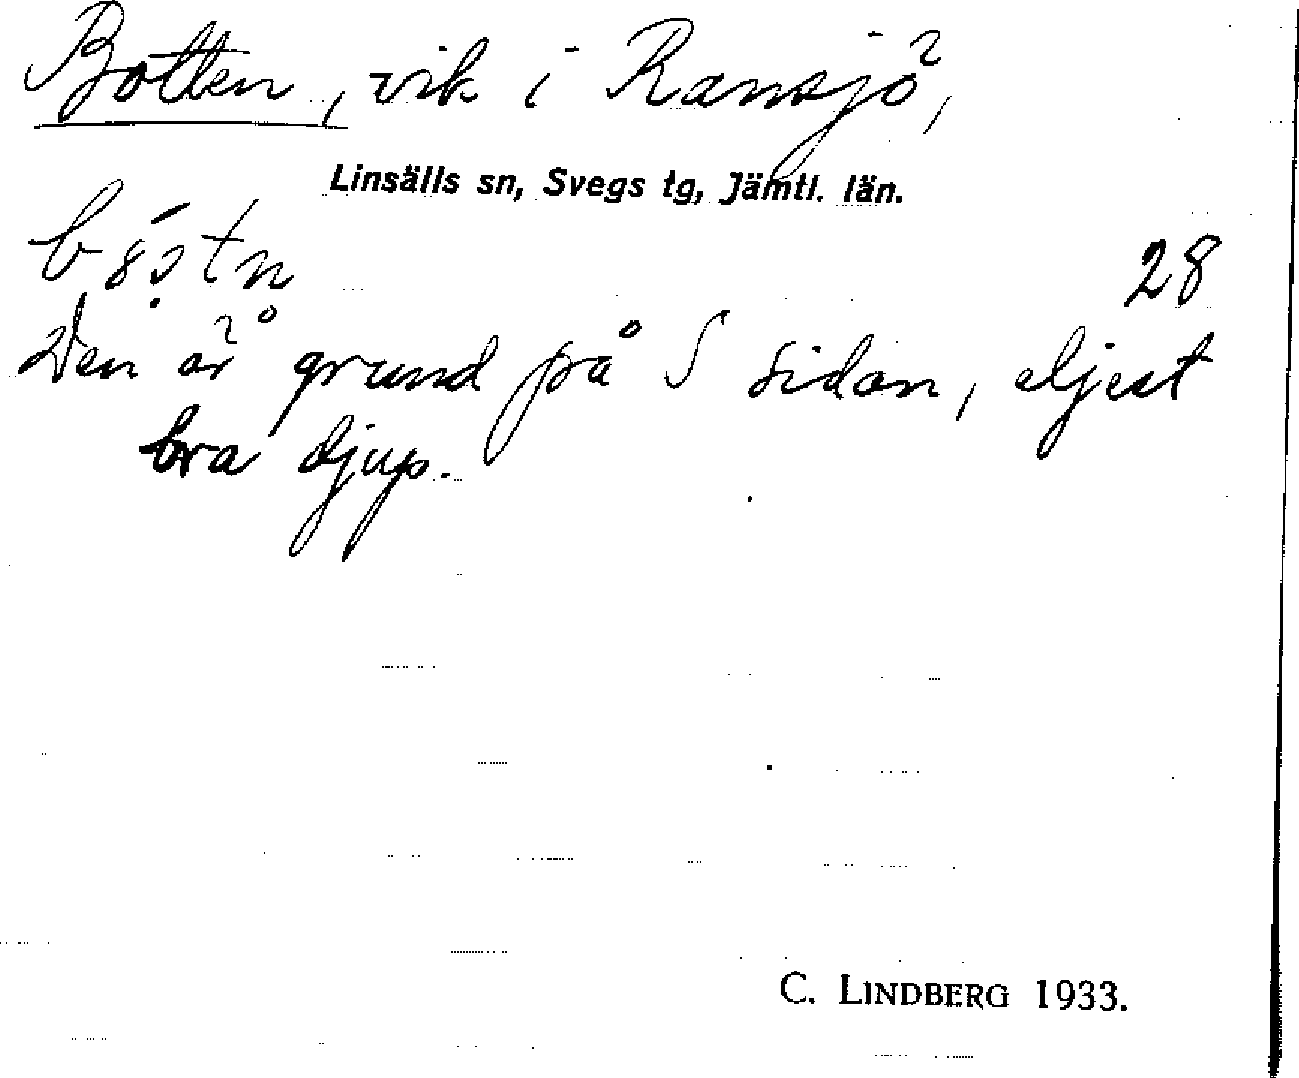 Botten, vik i Ransjö,
Linsälls sn, Svegs tg, Jämtl. län.
28
Den är grund på S sidan, eljest
bra djup.
C. LINDBERG 1933.